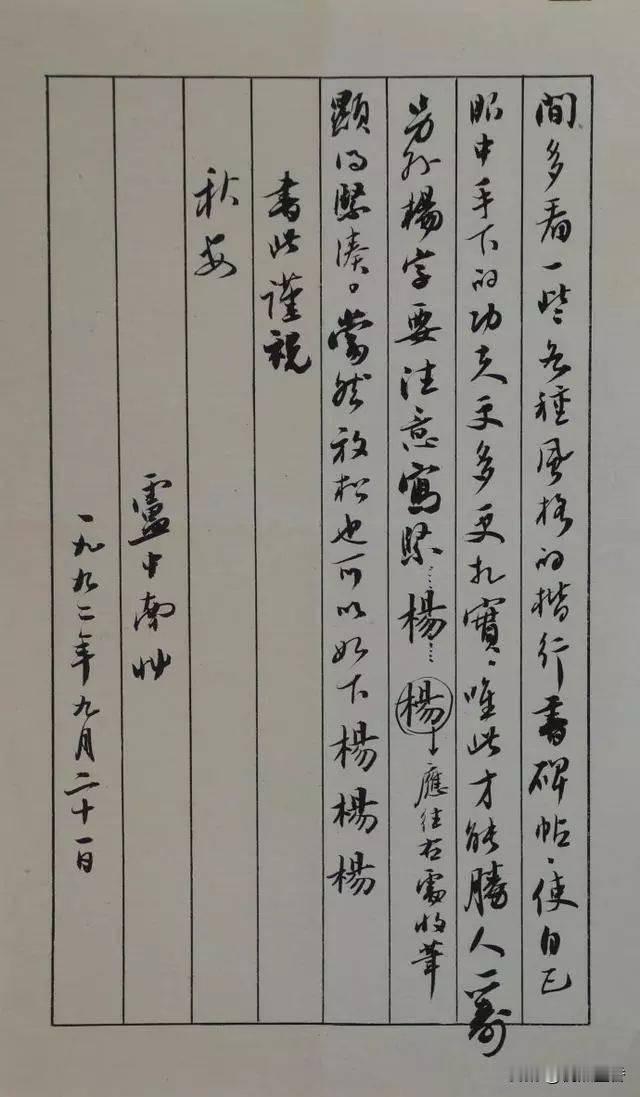 間多看一些各種風格的楷行書碑帖、使自己
眼中手下的功夫更多更扎實、唯此才能勝人一籌
另外楊字要注意寫緊…楊…楊→應往右處收筆
顯得緊湊。當然放松也可以如下楊楊楊
書此謹祝
秋安
盧中南
一九九二年九月二十一日